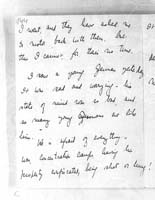 I went, and they have asked me
to motor back with them. But
this I cannot, for there no time.
I saw a young German yesterday
He was sad and worrying - his
state of mind was so bad, and
so many young Germans are like
him. He is afraid of everything.
concentration camps, having his
passport confiscated, being shot or